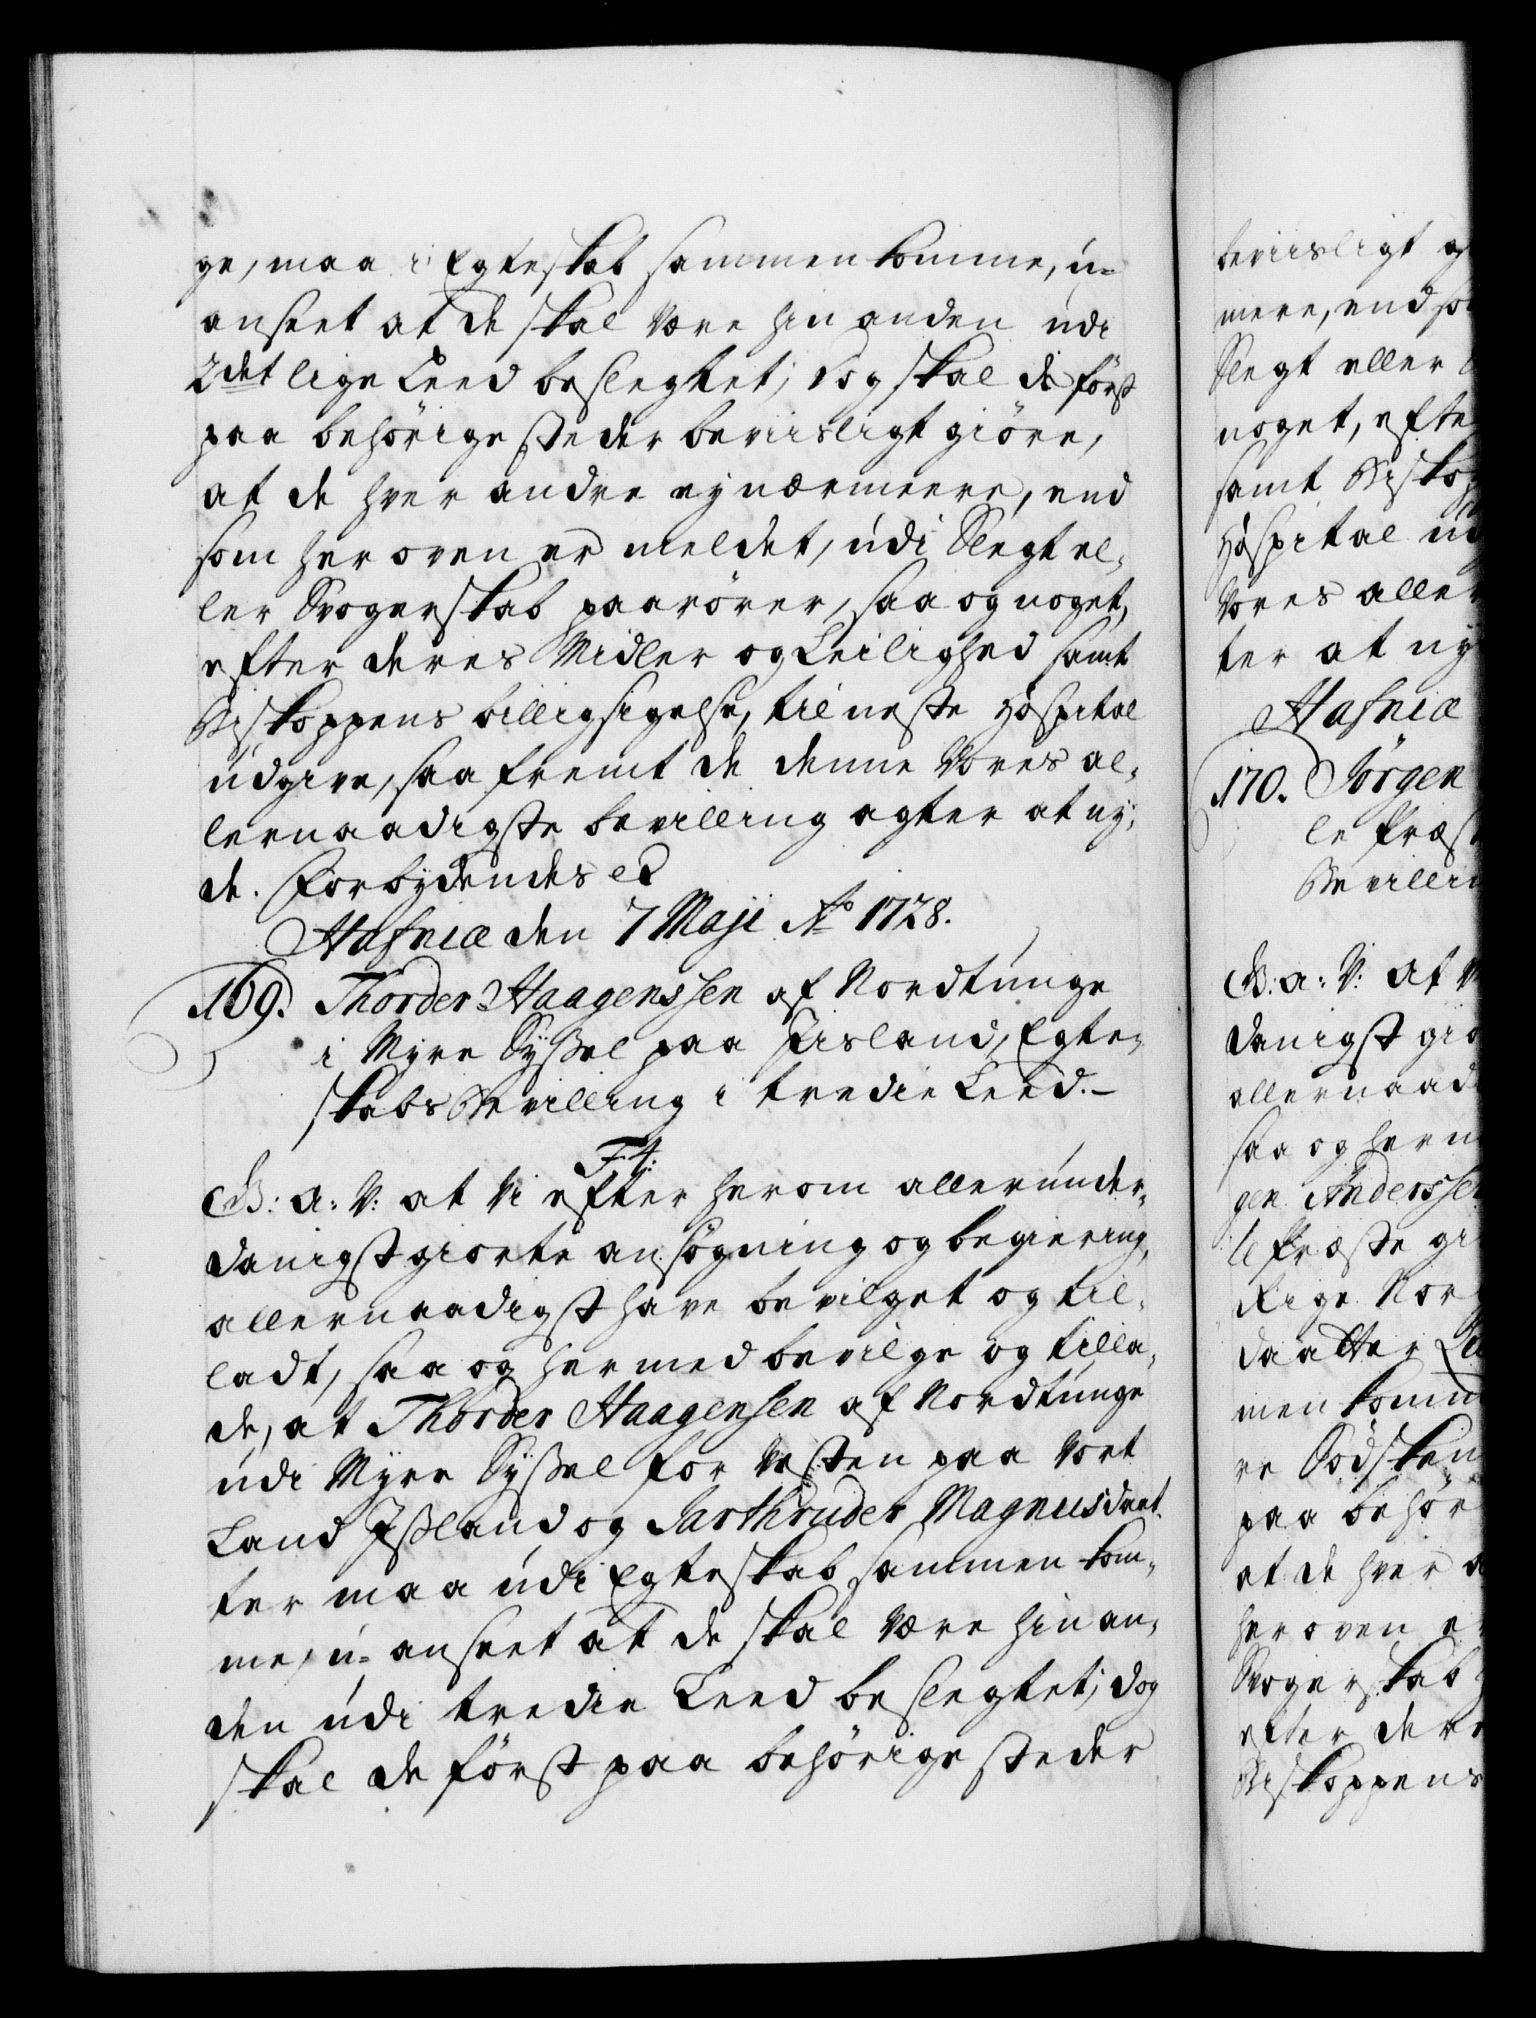 ge, maa i Egteskab sammen komme, u-
anseet at de skal være hin anden udi
2det lige Leed beslegtet; dog skal de först
paa behörige steder beviisligt giöre,
at de hver andre ey nærmeere, end
som her oven er meldet, udi Slegt el-
ler Svogerskab paarörer, saa og noget,
efter deres Midler og Leilighed samt
Biskoppens billigsigelse, til neste Hospital
udgive, saafremt de denne Vores al-
lernaadigste bevilling agter at ny-
de. Forbydendes etc
Hafniæ den 7 Maji Ao 1728.
169. Thorder Haagenssen af Nordtunge
i Myre Syssel paa Iisland, Egte-
skabs Bevilling i tredie Leed.-
F. 4.
G: A: V: at Vi efter herom allerunder-
danigst giorte ansögning og begiering,
allernaadigst have bevilget og til-
ladt, saa og hermed bevilge og tilla-
de, at Thorder Haagensen af Nordtunge
udi Myre Syssel for Vesten paa Vort
Land Issland og Jarthruder Magnusdaat-
ter maa udi Egteskab sammen kom-
me, u-anseet at de skal være hin an-
den udi tredie Leed beslegtet; dog
skal de först paa behörige steder
beviisligt
mere, end
Slegt eller
noget,
samt
Hospital
Vores
ter at
Hafniæ
170. Jörgen
G: a: V: at
danigst
saa og
gen Anderssen
Rige
daatter
men
paa
at de hver
her oven
Svogerskab
efter
Biskoppens